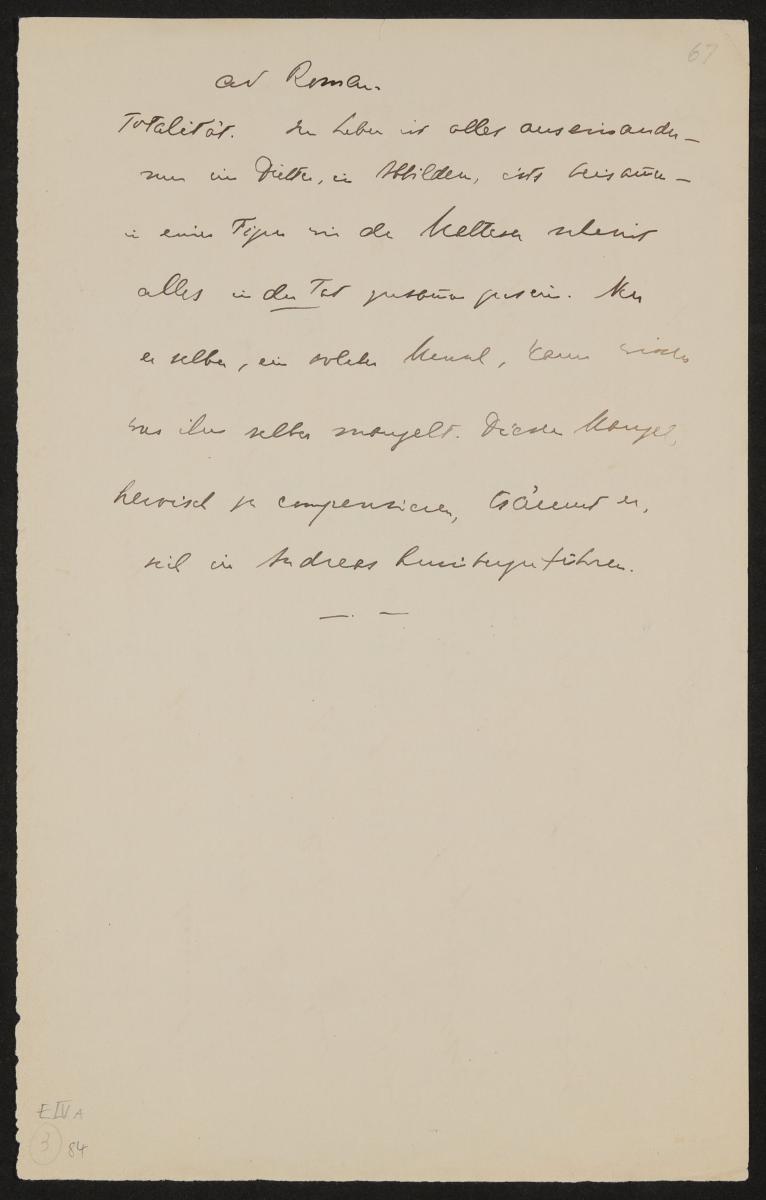 67
ad Roman.
Totalität. Im Leben ist alles auseinander –
nur im Dichter, in Abbilden, ists beisamen –
in einer Figur wie der Malteser scheint
alles in der Tat zusamen zu sein. Nur
er selber, ein solcher Mensch, kann wissen
was ihm selber mangelt. Diesen Mangel,
heroisch zu compensieren, träumt er,
sich in Andreas hinüberzuführen.
— . —
E IV A
3 84